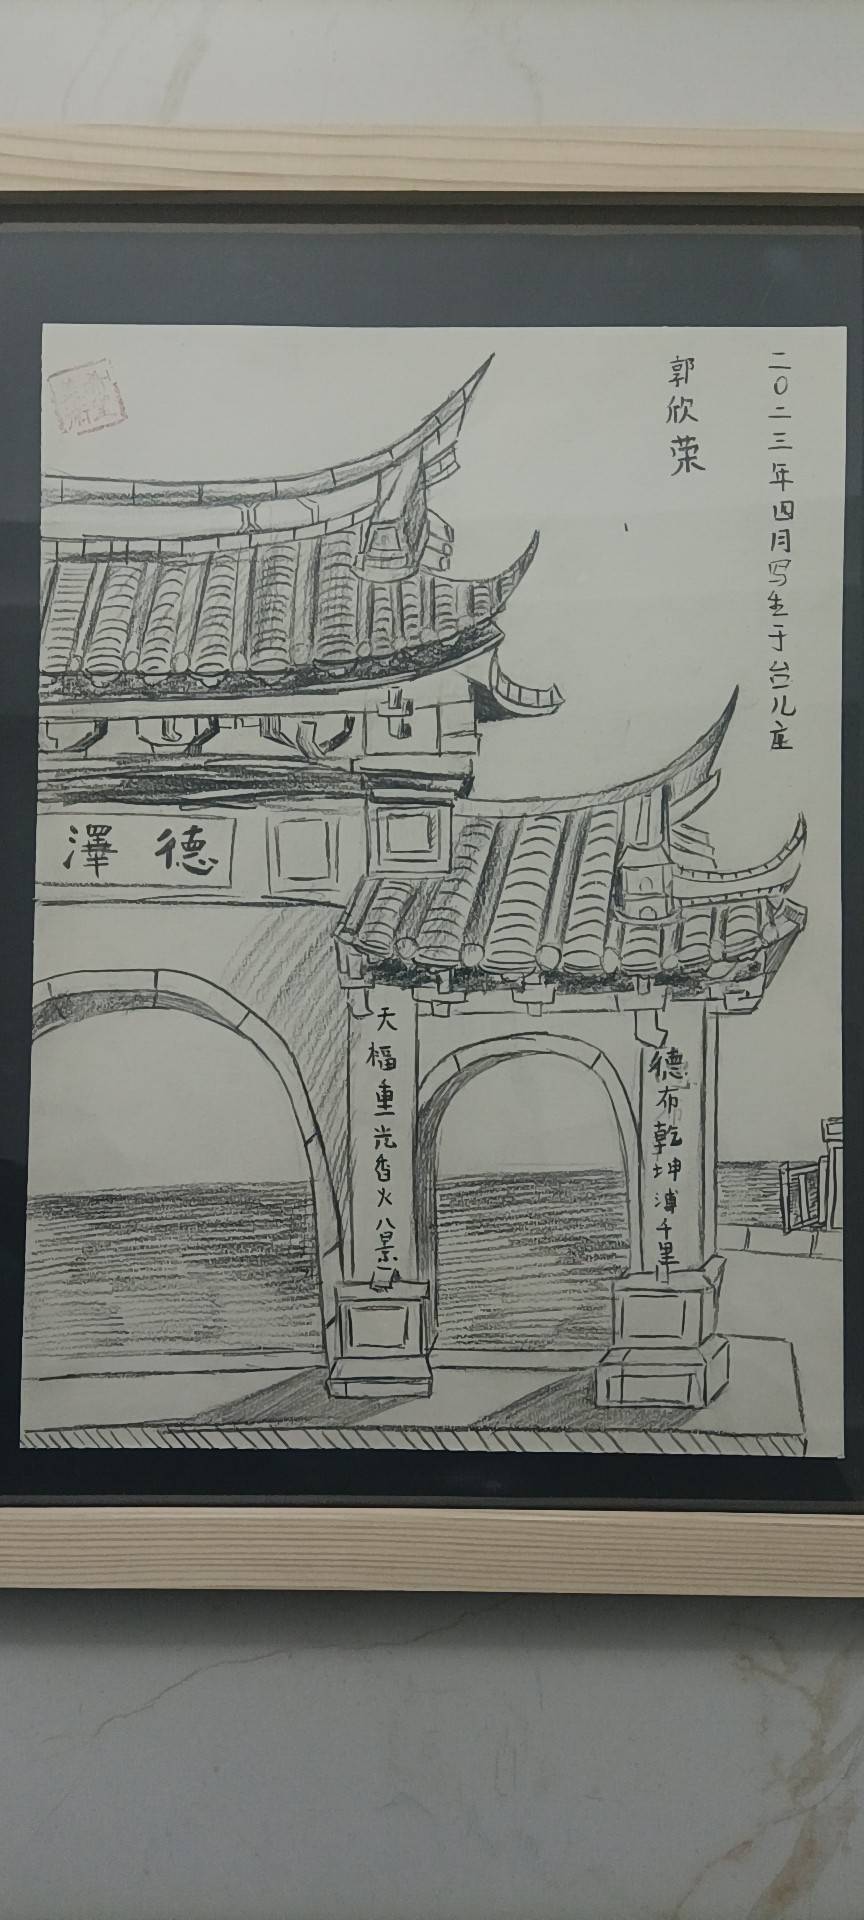 二〇二三年四月写生于台儿庄
郭欣荣
德澤
德布乾坤溥千里
天福重光香火八景